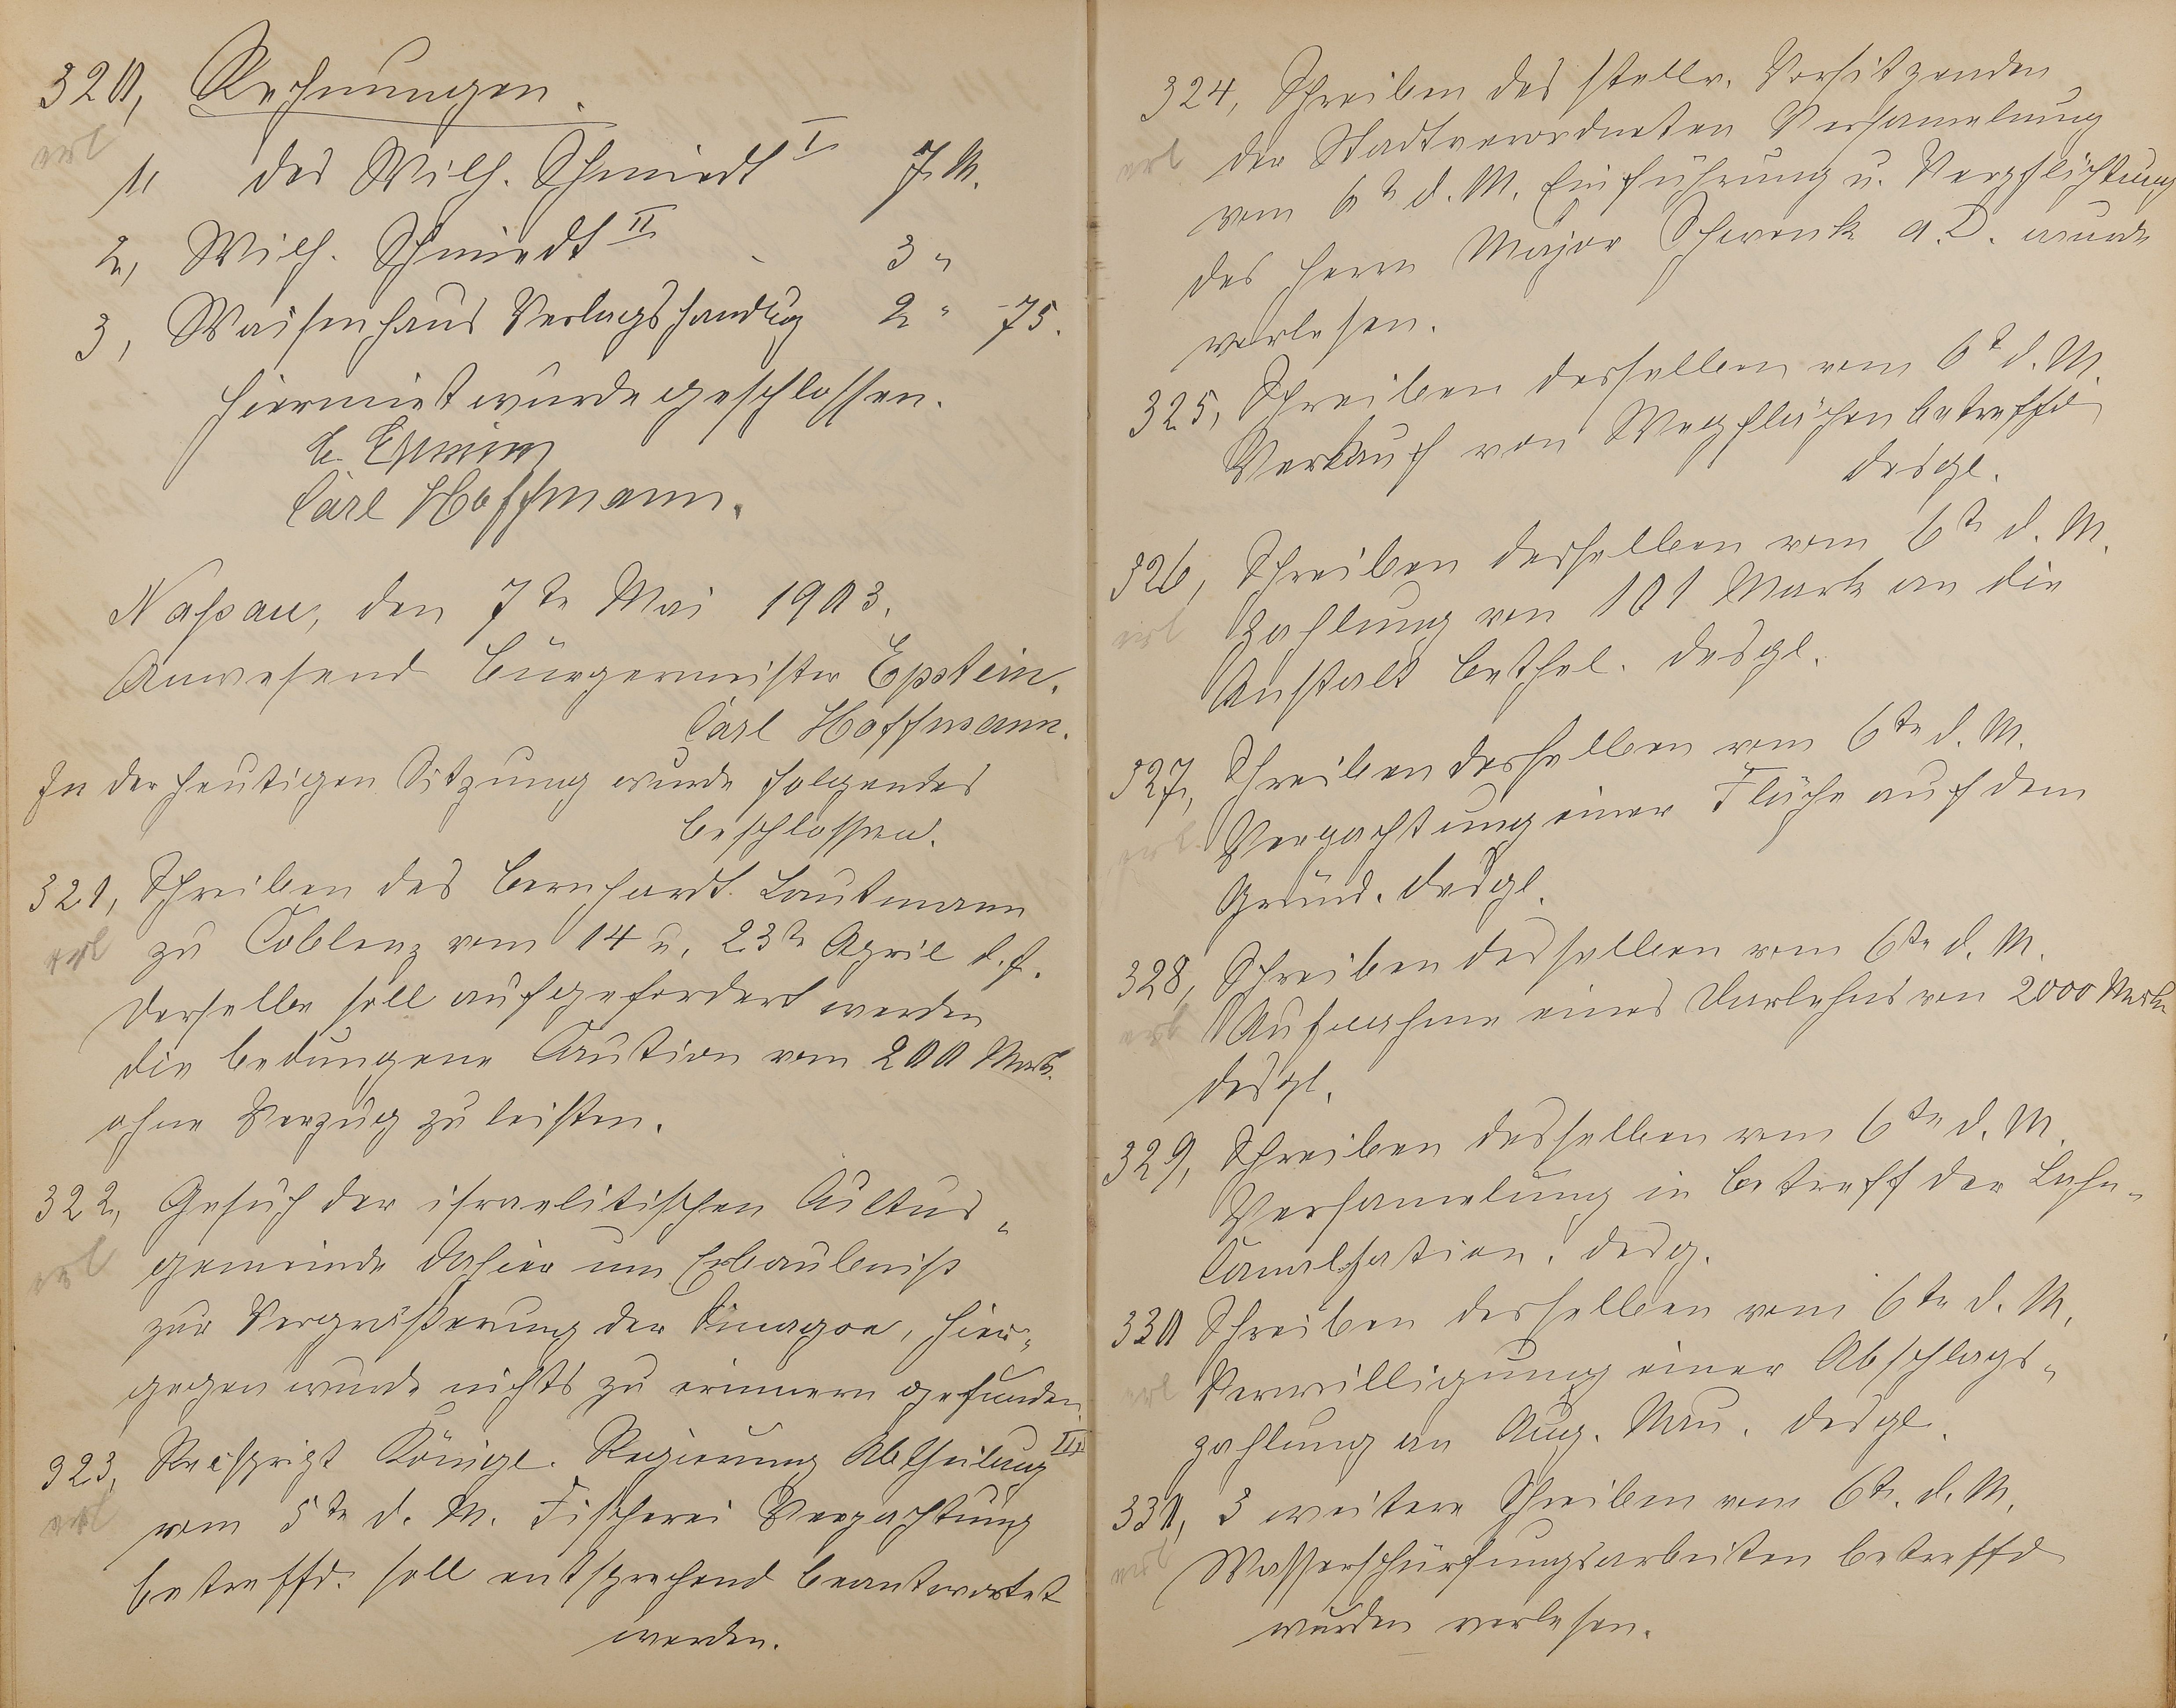 320, Rechnungen.
erl
1, des Wilh. Schmidt I 7. M.
2, Wilh. Schmidt II - 3 "
3, Waisenhaus Verlagshandlug 2 " 75.
Hiermiet wurde geschlossen.
Carl Hoffmann.
Nassau, den 7te Mai 1903.
Anwesend Bürgermeister Epstein.
Carl Hoffmann.
In der heutigen Sitzung wurde folgendes
beschlossen.
321, Schreiben des Bernhardt Lautmann
erl
zu Coblenz vom 14 u. 23te April d. J.
derselbe soll aufgefordert werden
die bedungene Caution vom 200 Mark.
ohne Verzug zu leisten.
322, Gesuch der israelitischen Cultus-
erl
gemeinde dahier um Erbaubniß
zur Vergrößerung der Sinagoe, hier-
gegen wurde nichts zu erinnern gefunden
323, Rescript Königl. Regierung Abtheilung III
erl
vom 5te d. M. Fischerei Verpachtung
betreffd. soll entsprechend beantwortet
werden.
324, Schreiben des stellv. Vorsitzenden
erl
der Stadtverordneten Versamelung
vom 6te d. M. Einführung u. Verpflichtung
des Herrn Major Schwenk a. D. wurde
verlesen.
325, Schreiben desselben vom 6t d. M.
Verkauf von Wegflächen betreffd
desgl.
326, Schreiben desselben vom 6te d. M.
erl
Zahlung von 101 Mark an die
Anstalt Bethel. desgl.
327, Schreiben desselben vom 6te d. M.
erl.
Verpachtung einer Fläche auf dem
Grund. desgl.
328, Schreiben desselben vom 6te d. M.
erl
Aufnahme eines Darlehns von 2000 Mark
desgl.
329, Schreiben desselben vom 6te d. M.
Versamelung in Betreff der Lahn-
Canalsation. desg.
330 Schreiben desselben vom 6te d. M.
erl
Verwilligung einer Abschlags-
zahlung an Aug. Mau. desgl.
331, 3 weitere Schreiben vom 6te. d. M.
erl
Wasserschürfungsarbeiten betreffd
wurden verlesen.